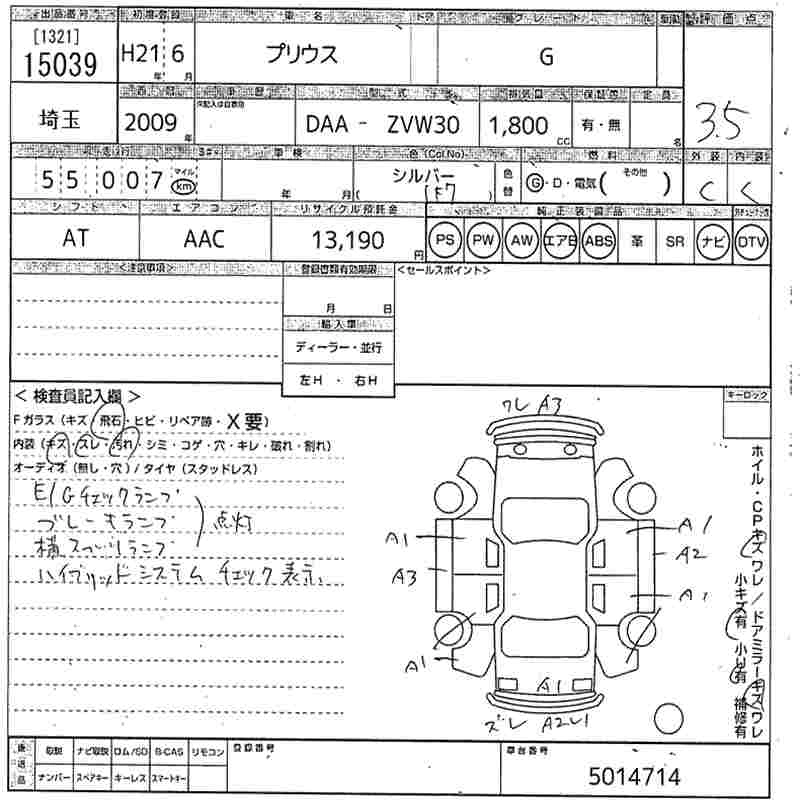 出品番号 初度登録 車名 ドア グレード 車歴 評価点
[1321]
15039 H21年 6月 プリウス G 3.5
埼玉 2009年 DAA - ZVW30 1,800cc 有・無 名
西暦 型式 排気量 保証書 定員
走行 車検 色(Col.No) 燃料 外装 内装
55,007 マイル km 年 月 シルバー (1F7) 色替 G・D・電気 (その他) C C
シフト エアコン リサイクル預託金 純正装備品
AT AAC 13,190円 PS PW AW エアB ABS 革 SR ナビ DTV
<注意事項> 登録書類有効期限 <セールスポイント>
月 日
輸入車
ディーラー・並行
左H ・ 右H
キーロック
<検査員記入欄>
Fガラス(キズ・飛石・ヒビ・リペア跡・X要)
内装(キズ・スレ・汚れ・シミ・コゲ・穴・キレ・破れ・割れ)
オーディオ(無し・穴)/タイヤ(スタッドレス)
E/Gチェックランプ
ブレーキランプ 点灯
横スベリランプ
ハイブリッドシステムチェック表示.
ワレ A3
A1 A1
A2
A3 A1
A1
A1
ズレ A2U1
ホイル・CPキズワレ/ドアミラーキズワレ
小キズ有 小U有 補修有
後送品 取説 ナビ取説 ロム/SD B-CAS リモコン 登録番号 車台番号
ナンバー スペアキー キーレス スマートキー 5014714